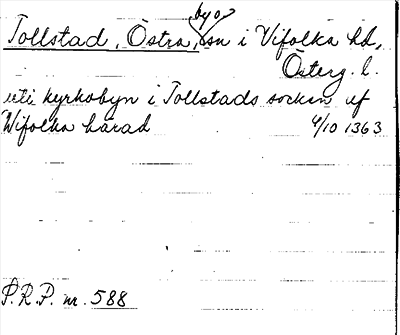 by o.
Tollstad, Östra, sn i Vifolka hd,
Österg. l.
uti kyrkobyn i Tollstads socken uf
Wifolka härad 4/10 1363
P.R.P. nr. 588